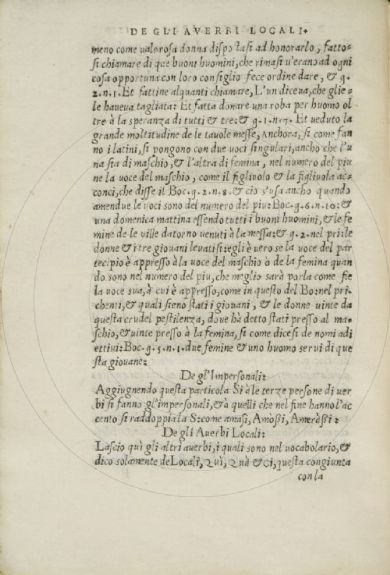 DE GLI AVERBI LOCALI.
meno come valorosa donna dispostasi ad honorarlo, fatto-
si chiamare di que buoni huomini, che rimasi u'erano ad ogni
cosa opportuna con loro consiglio fece ordine dare, & g.
2.n.1. Et fattine alquanti chiamare, L'un diceua, che glie-
le haueua tagliata: Et fatta donare una roba per huomo ol
tre à la speranza di tutti & tre: & g.1.n.7. Et ueduto la
grande moltitudine de le tauole messe, Anchora, si come fan
no i latini, si pongono con due uoci singulari, ancho che l'u
na sia di maschio, & l'altra di femina, nel numero del piu
ne la uoce del maschio, come il figliuolo & la figliuola ac
conci, che disse il Boc.g.2.n.8. & cio s'usa ancho quando
amendue le uoci sono del numero del piu: Boc.g.6.n.10: &
una domenica mattina essendo tutti i buoni huomini, & le fe
mine de le ville datorno uenuti à la messa: & g.2. nel pri: le
donne & i tre giouani leuatisi: egli è uero se la uoce del par
tecipio è appresso à la uoce del maschio ò de la femina quan
do sono nel numero del piu, che meglio sarà porla come fie
la uoce sua, à cui è appresso; come in questo del Bo: nel pri
cheuti, & quali sieno stati i giouani, & le donne uinte da
questa crudel pestilenza, doue hà detto stati presso al ma-
schio, & uinte presso à la femina, si come dicesi de nomi adi
ettiui: Boc.g.5.n.1. due femine & uno huomo serui di que
sta giouane:
De gl'Impersonali:
Aggiugnendo questa particola Si à le terze persone di uer
bi si fanno gl'impersonali, & à quelli che nel fine hanno l'ac
cento si raddoppia la S: come amasi, Amoßi, Ameràßi:
De gli Auerbi Locali:
Lascio qui gli altri auerbi, i quali sono nel uocabolario, &
dico solamente de Locali, Quì, Quà & Ci, questa congiunta
con la